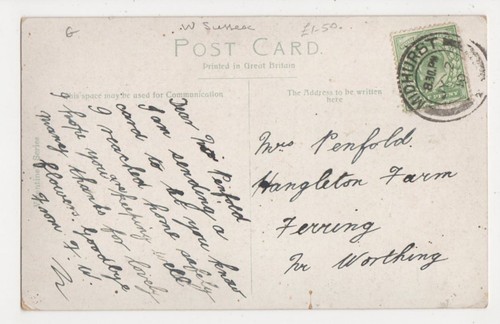 G
W Sussex
£1.50.
POST CARD.
Printed in Great Britain
This space may be used for Communication
The Address to be written
here
MIDHURST
Dear Mrs Penfold
I am sending a
card to let you know
I reached home safely
I hope you are keeping well
many thanks for lovely
flowers. Goodbye.
from F. W.
Mrs Penfold.
Hangleton Farm
Ferring
Nr Worthing